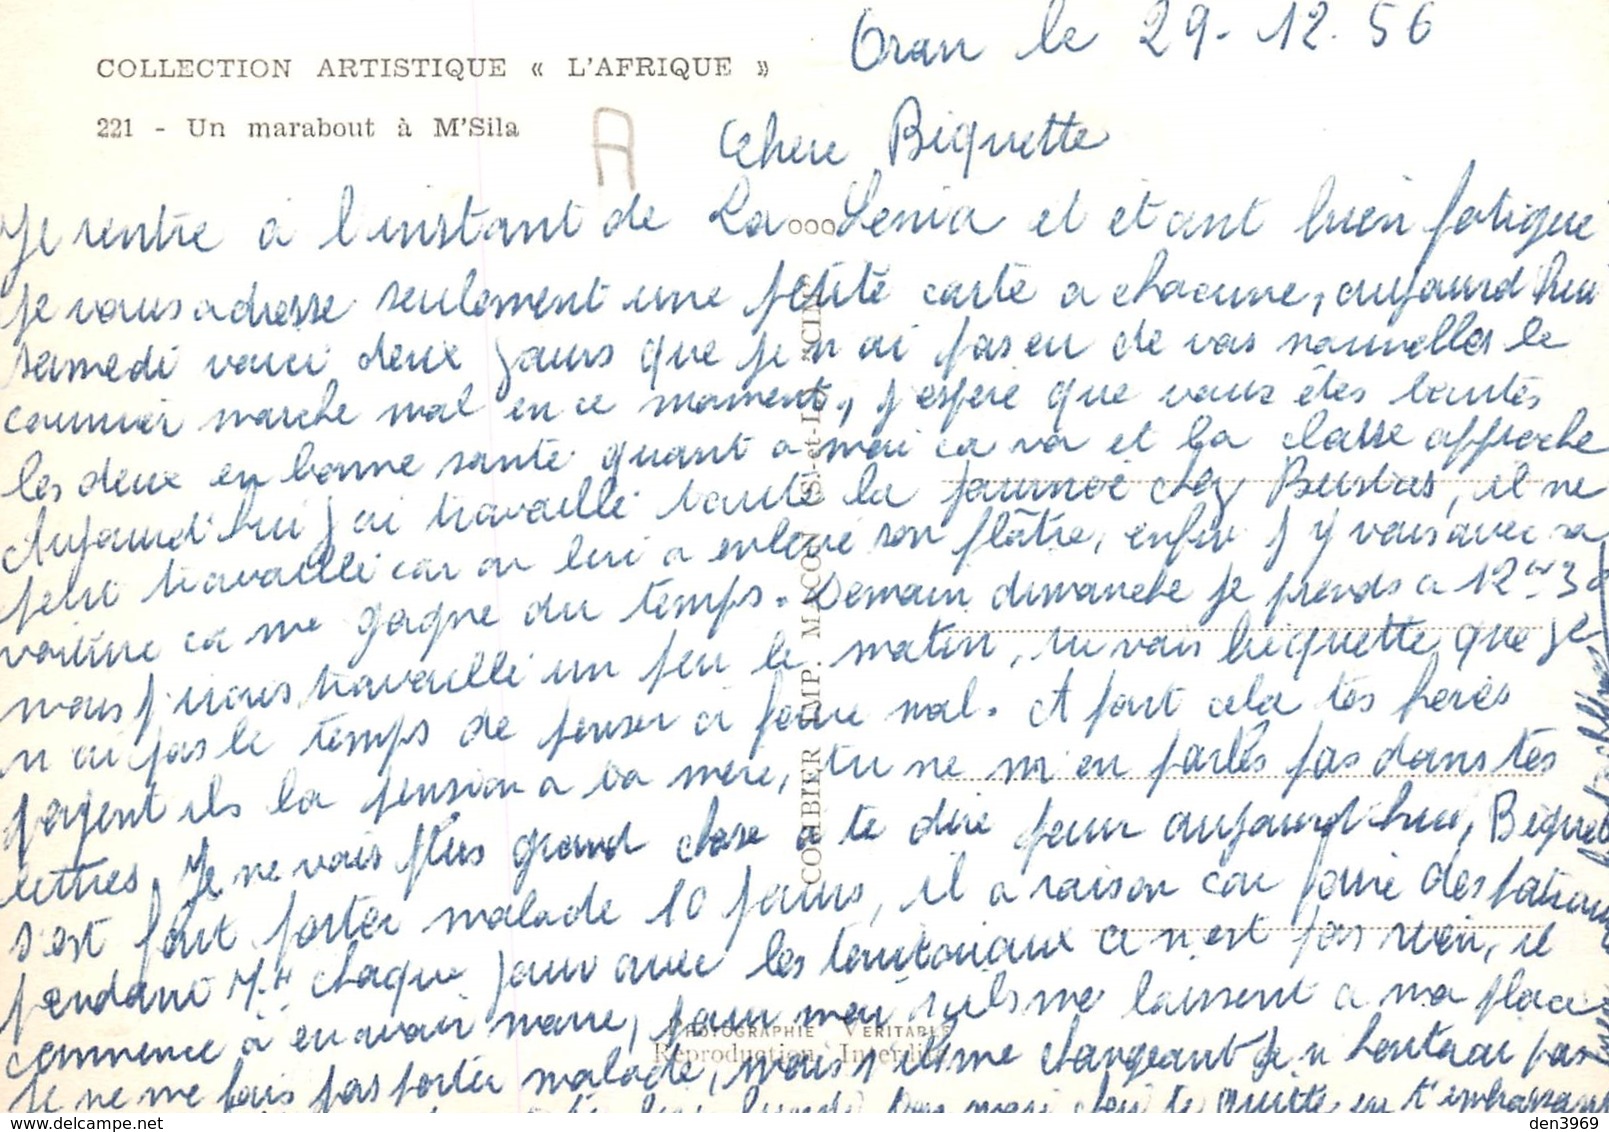 Oran le 29-12.56
COLLECTION ARTISTIQUE « L'AFRIQUE »
221 - Un marabout à M'Sila
A
Chere Biquette
Je rentre a l'instant de La Senia et etant bien fatigue
je vous adresse seulement une petite carte a chacune, aujourd'hui
samedi voici deux jours que je n ai pas eu de vos nouvelles le
courrier marche mal en ce moment, j'espere que vous êtes toutes
les deux en bonne sante quant a moi ca va et la classe approche
Aujourd'hui j ai travaille toute la journee chez il ne
peut travaille car on lui a enleve son plâtre, enfin j y vais avec sa
voiture ca me gagne du temps. Demain dimanche je prends a 12
mais j travaille un peu le matin, tu vois biquette que je
n ai pas le temps de penser a faire mal. A part cela tes freres
payent ils la pension a ta mere, tu ne m'en parles pas dans tes
lettres. Je ne vois plus grand chose a te dire pour aujourd'hui,
s'est fait porter malade 10 jours, il a raison car faire des
pendant chaque jour avec les territoriaux ce n'est pas rien, il
commence à en avoir marre, pour moi s ils me laissent a ma place
je ne me fais pas porter malade, mais s ils me changeant je n hesiterai pas
te quitte en t'embrassant
COMBIER IMP. MACON (S.-et-L.) "CIM"
PHOTOGRAPHIE VERITABLE
Reproduction Interdite
delcampe.net
den3969